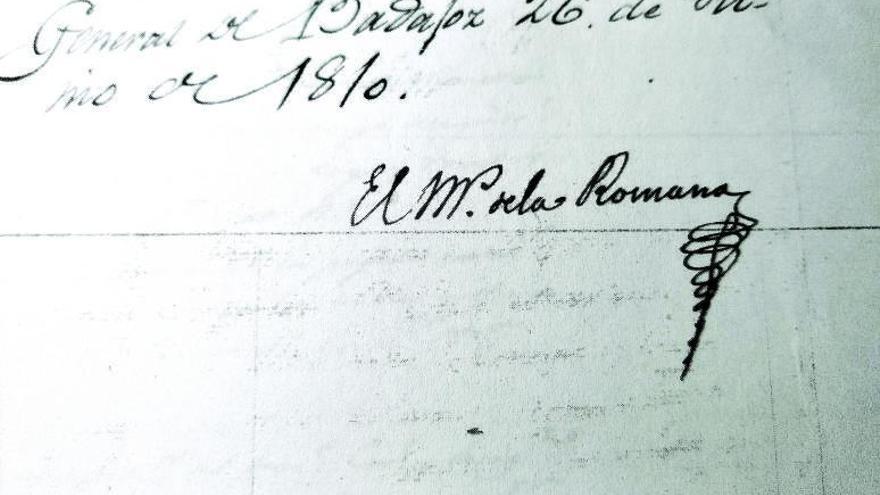 General de Badajoz 26. de Ju-
nio de 1810.
El M.ˢ dela Romana